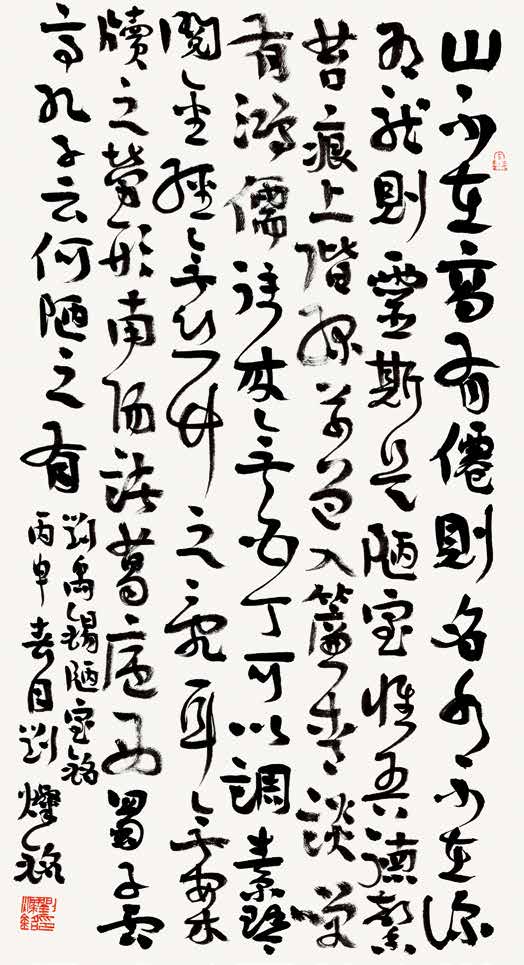 山不在高有僊則名水不在深
有龍則靈斯是陋室惟吾德馨
苔痕上階綠草色入簾青談笑
有鴻儒往來無白丁可以調素琴
閱金經無絲竹之亂耳無案
牘之勞形南陽諸葛廬西蜀子雲
亭孔子云何陋之有
劉禹錫陋室銘
丙申春月劉燦銘